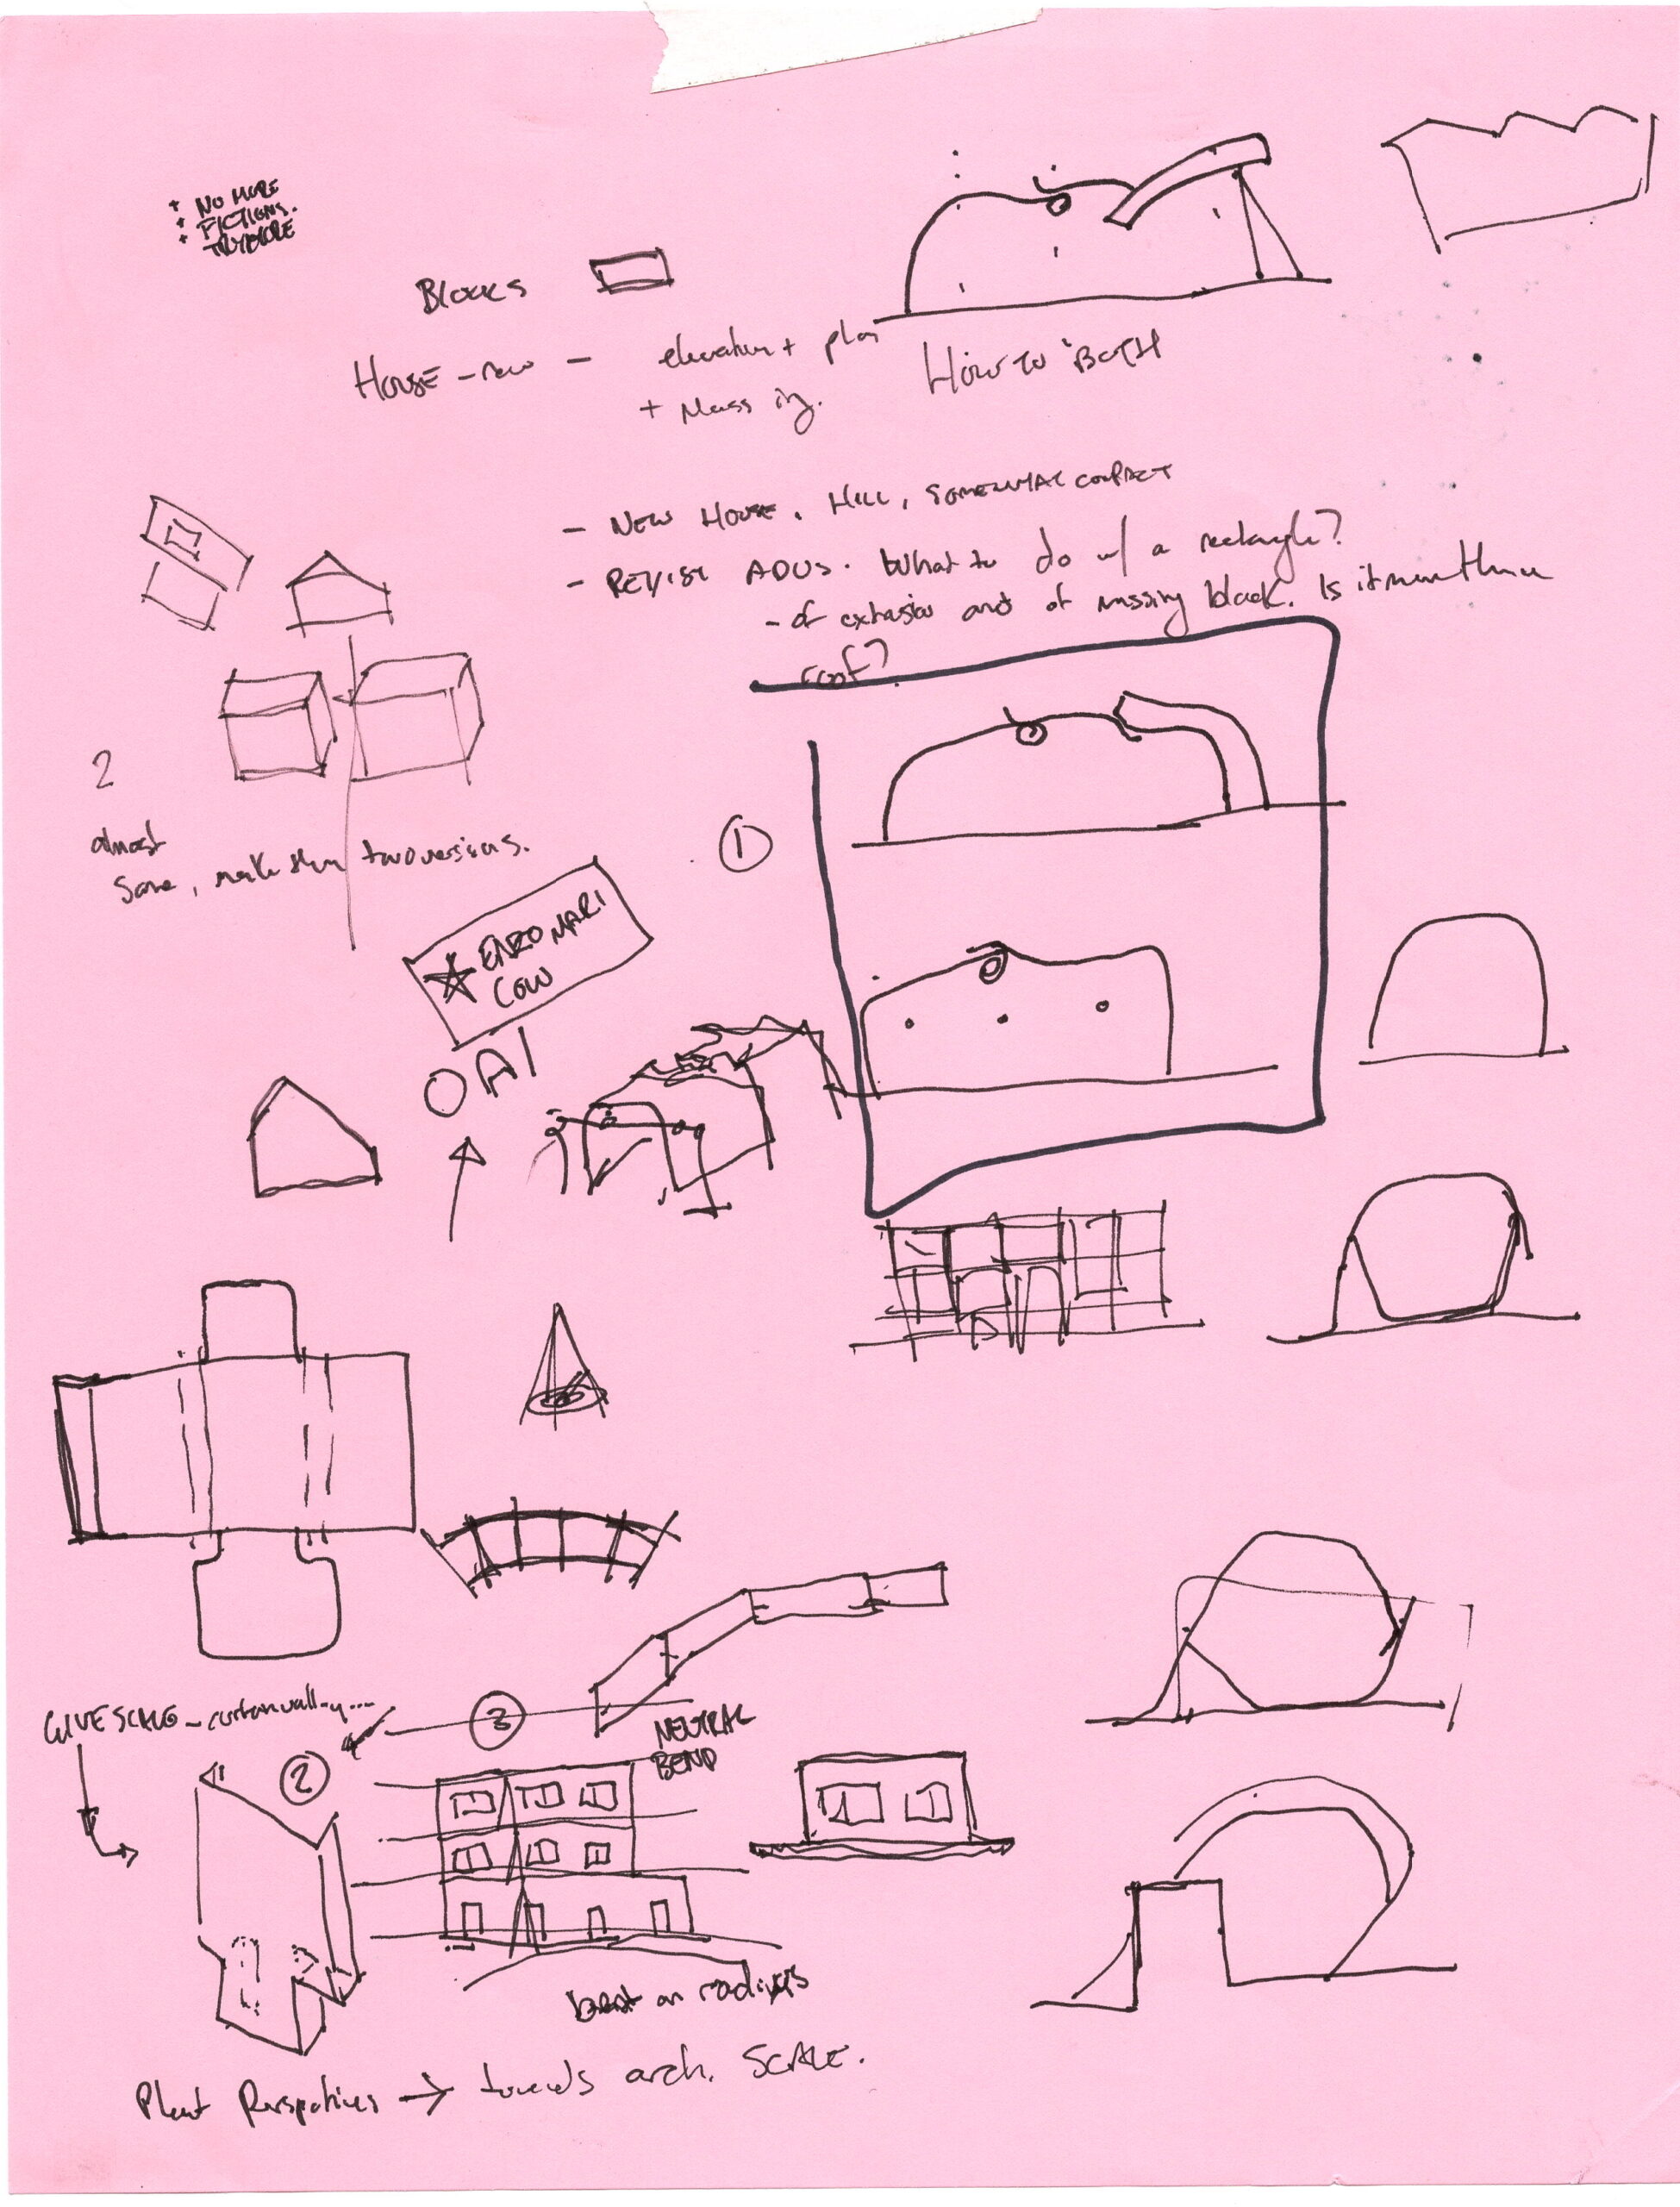 + NO MORE
+ FICTIONS.
+
BLOCKS
HOUSE - new - elevation + plan
+ Massing.
HOW TO "BOTH
- NEW HOUSE, HILL, SOMEWHAT COMPACT
- REVISE ADUS. What to do w/ a rectangle?
- of extrusion and of massing block. Is it more than a
roof?
2
almost
same, make them two versions.
1
ENZO MARI
COW
OAI
GIVE SCALE - curtain wall
3
2
NEUTRAL
BEND
bent on radius
Plant Perspectives → towards arch. SCALE.